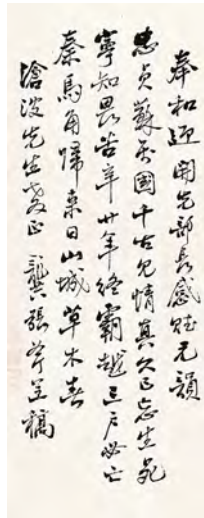 奉和迎 開先部長感賦元韻
忠貞蘇屬國千古見情真久已忘生死
寧知畏苦辛廿年終霸越三戶必亡
秦馬角歸來日山城草木春
滄波先生教正 龔張斧呈稿